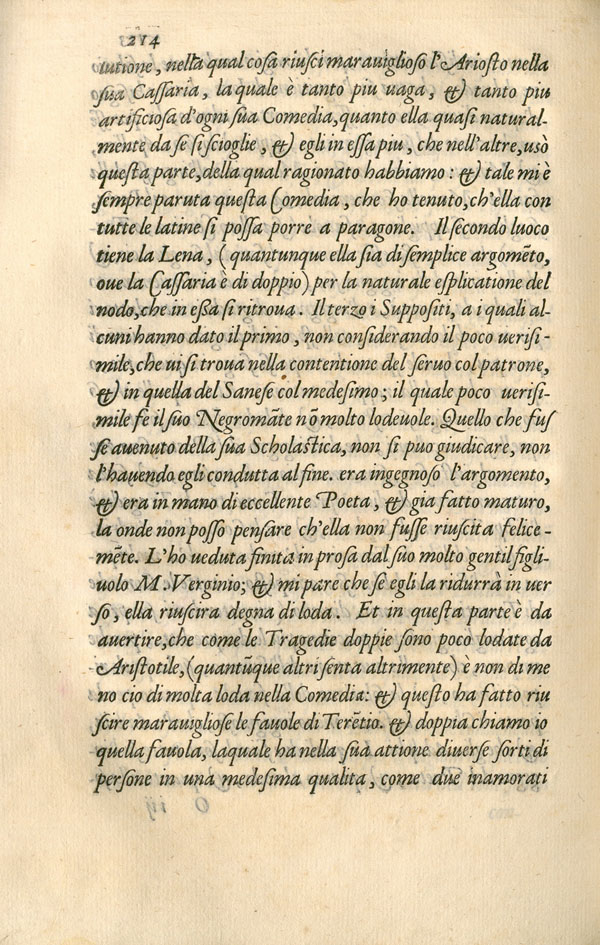 214
lutione, nella qual cosa riusci marauiglioso l'Ariosto nella
sua Cassaria, la quale è tanto piu uaga, & tanto piu
artificiosa d'ogni sua Comedia, quanto ella quasi natural-
mente da se si scioglie, & egli in essa piu, che nell'altre, usò
questa parte, della qual ragionato habbiamo: & tale mi è
sempre paruta questa Comedia, che ho tenuto, ch'ella con
tutte le latine si possa porre a paragone. Il secondo luoco
tiene la Lena, (quantunque ella sia di semplice argomēto,
oue la Cassaria è di doppio) per la naturale esplicatione del
nodo, che in essa si ritroua. Il terzo i Suppositi, a i quali al-
cuni hanno dato il primo, non considerando il poco uerisi-
mile, che ui si troua nella contentione del seruo col patrone,
& in quella del Sanese col medesimo; il quale poco uerisi-
mile fe il suo Negromāte nō molto lodeuole. Quello che fus
se auenuto della sua Scholastica, non si puo giudicare, non
l'hauendo egli condutta al fine. era ingegnoso l'argomento,
& era in mano di eccellente Poeta, & gia fatto maturo,
la onde non posso pensare ch'ella non fusse riuscita felice-
mēte. L'ho ueduta finita in prosa dal suo molto gentil figli-
uolo M. Verginio; & mi pare che se egli la ridurrà in uer
so, ella riuscira degna di loda. Et in questa parte è da
auertire, che come le Tragedie doppie sono poco lodate da
Aristotile, (quantūque altri senta altrimente) è non di me
no cio di molta loda nella Comedia: & questo ha fatto riu
scire marauigliose le fauole di Terētio. & doppia chiamo io
quella fauola, laquale ha nella sua attione diuerse sorti di
persone in una medesima qualita, come due inamorati